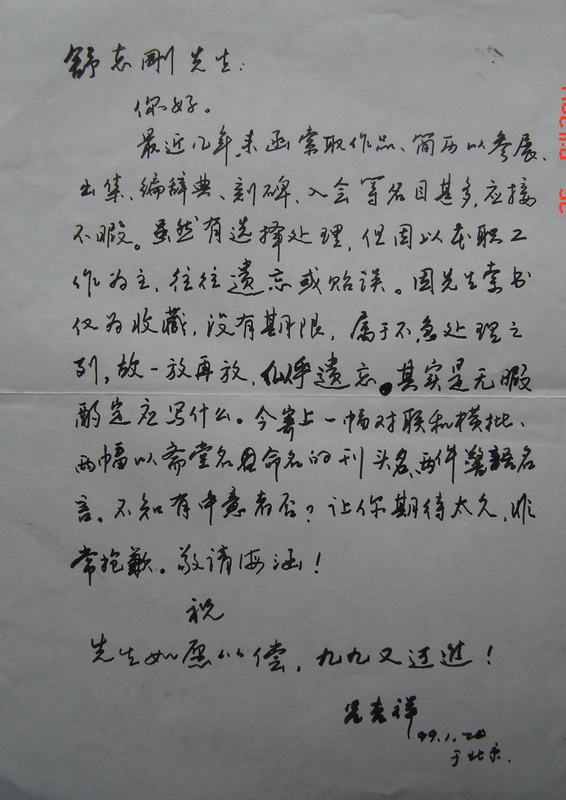 舒志刚先生:
你好。
最近几年,来函索取作品、简历以参展、
出集、编辞典、刻碑、入会等名目甚多,应接
不暇。虽然有选择处理,但因以本职工
作为主,往往遗忘或贻误。因先生索书
仅为收藏,没有期限,属于不急处理之
列,故一放再放,似乎遗忘。其实是无暇
酌定应写什么。今寄上一幅对联和横批、
两幅以斋堂名目命名的刊头名、两件警语名
言。不知有中意者否?让你期待太久,非
常抱歉。敬请海涵!
祝
先生如愿以偿,九九又迈进!
吉祥
99.1.20
于北京.